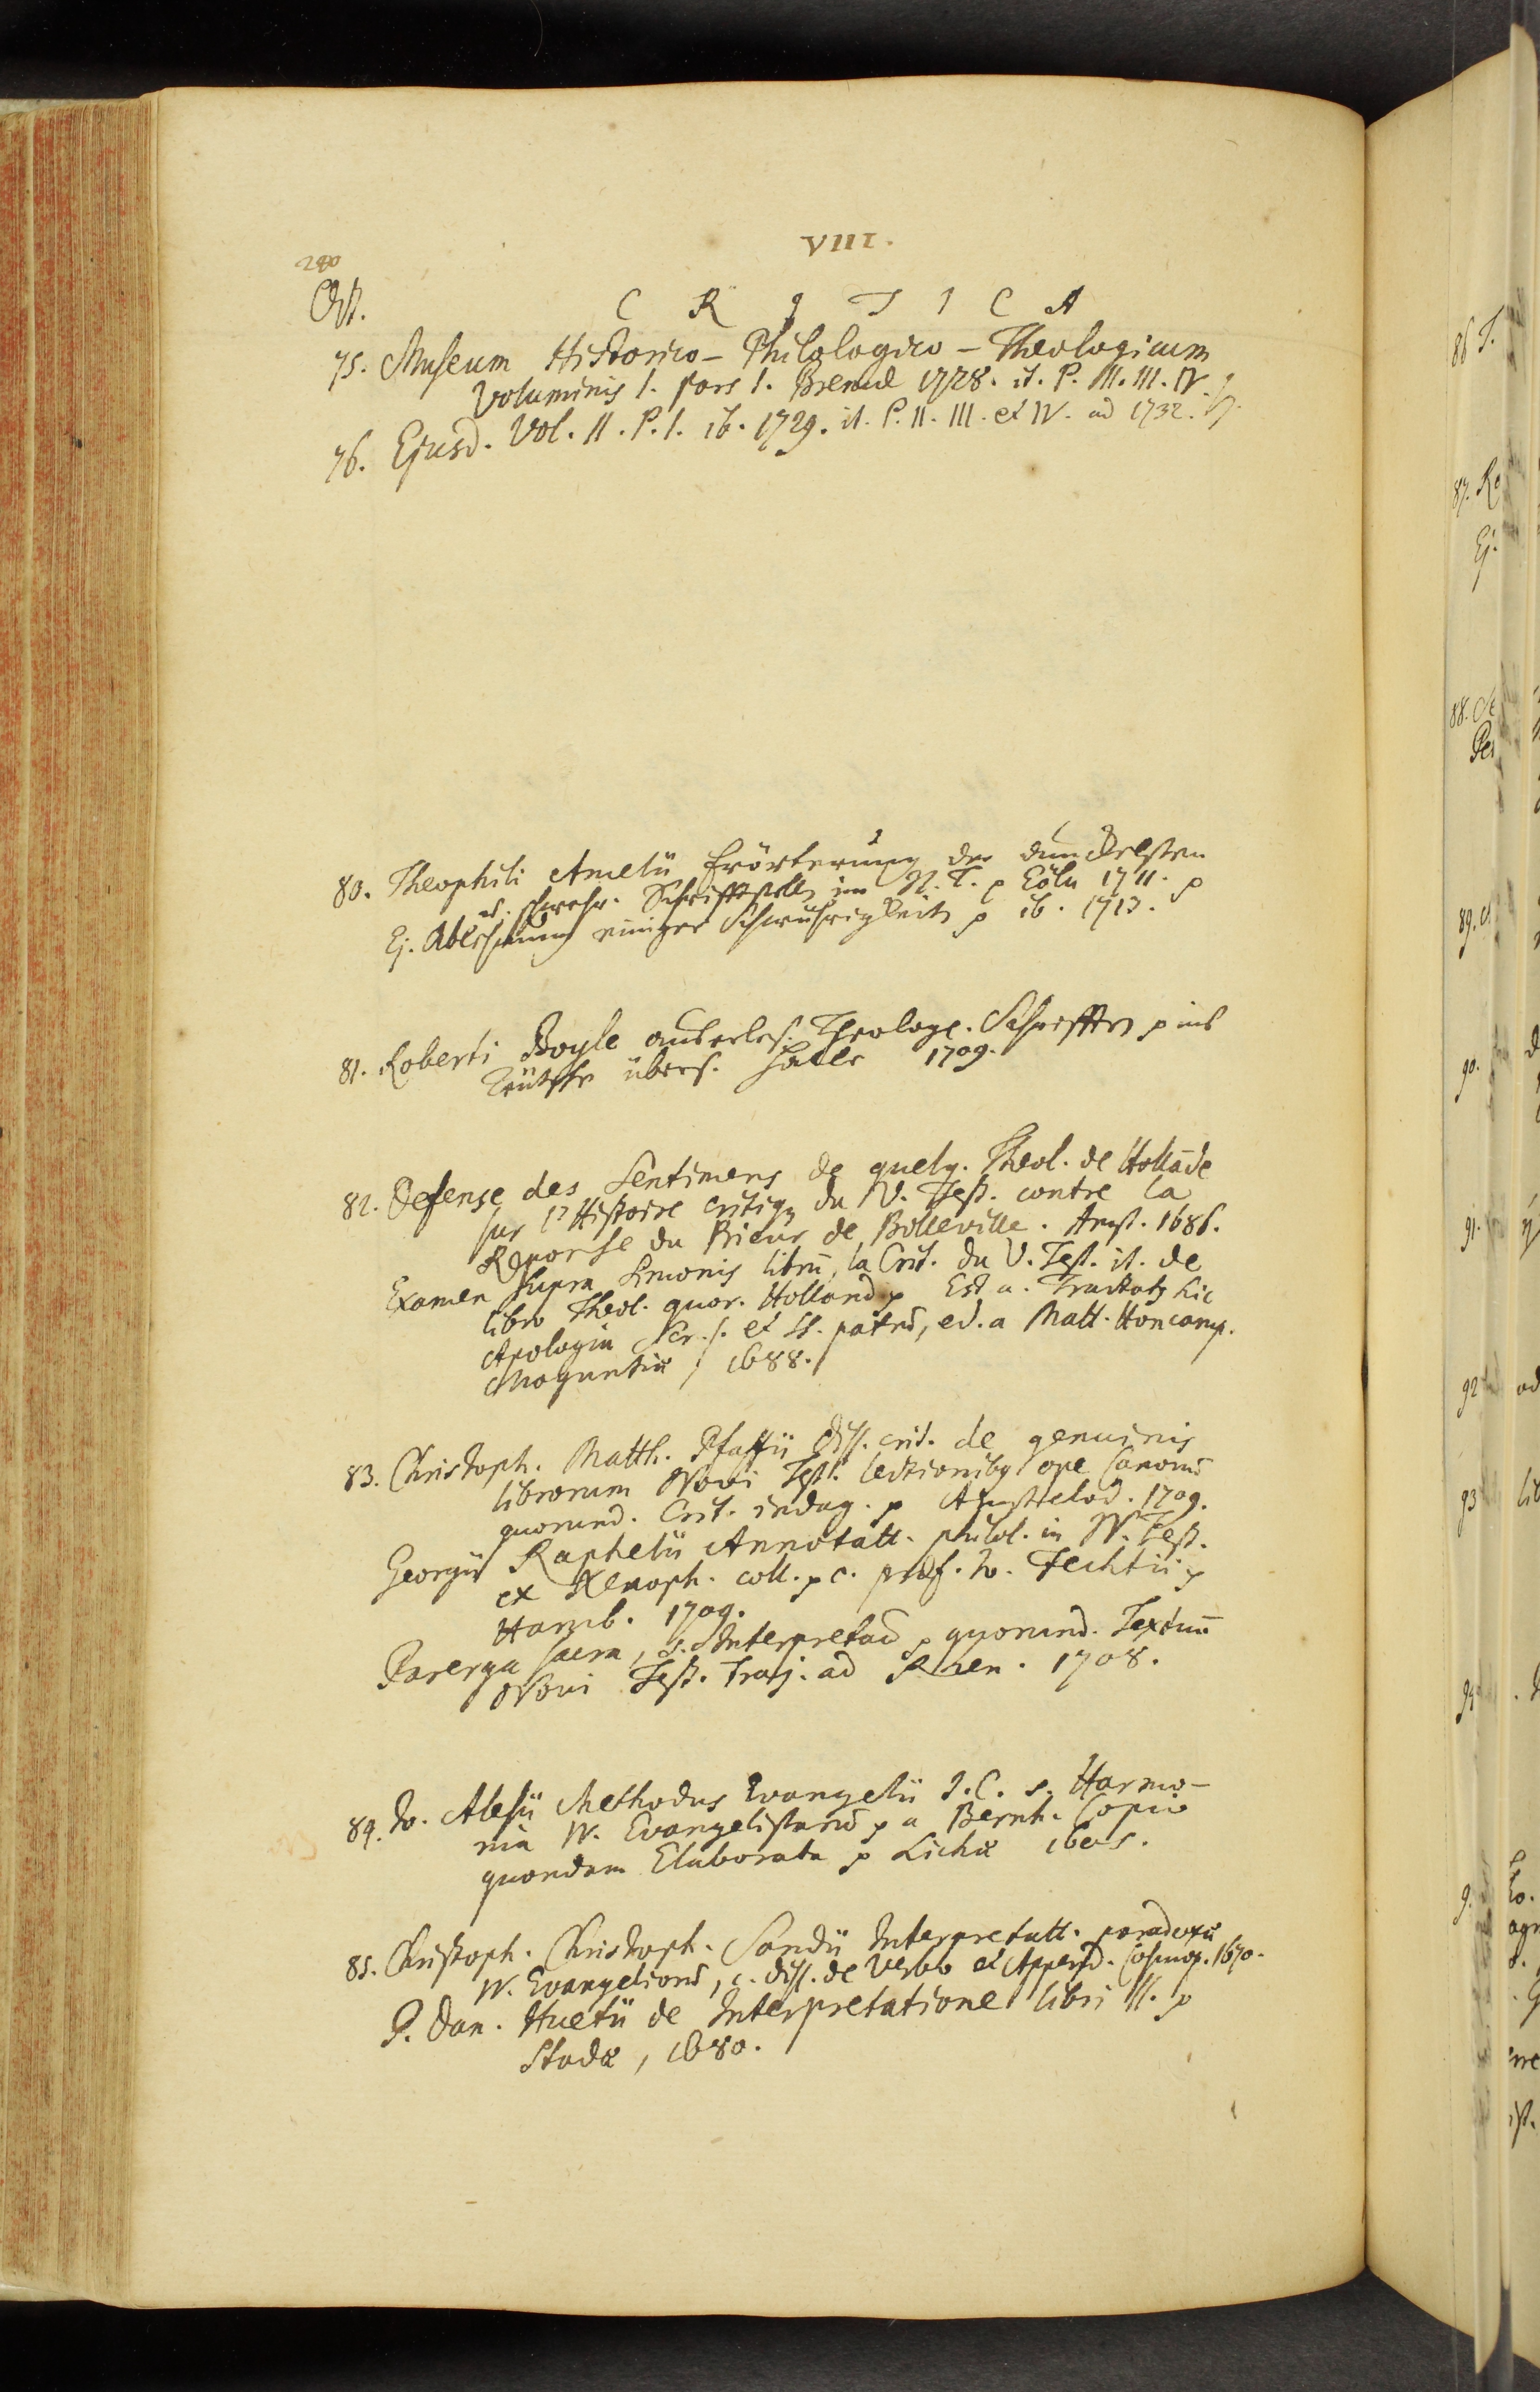 VIII.
280
Oct.
C R I T I C A
75. Museum Historico-Philologico-Theologicum
Voluminis I. Pars I. Bremæ 1728. it. P. II. III. IV
76. Ejusd. Vol. II. P. I. ib. 1729. it. P. II. III. et IV. ad 1732.
80. Theophili Amelii Erörterung der dunckelsten
u. schwehr. Schrifftstelln im N. T. p Cöln 1711. p
Ej. einiger Schwührigkeitn p ib. 1713.
81. Roberti Boyle auserles. Theologe. Schrifften p ins
Teütsche übers. Halle 1709.
82. Defense des Sentimens de quelq. Theol. de Hollāde
sur l'Histoire critiq du V. Test. contre la
Reponse du Prieur de Bolleville. Amst. 1686.
Examen supra Simonis librū, la Crit. du V. Test. it. de
libro Theol. quor. Holland p Est a. Tractatq hic
Apologia Scr. s. et SS. patrū, ed. a Matt. Honcamp.
Moguntiæ, 1688.
83. Christoph. Matth. Pfaffii diss. crit. de genuinis
librorum Novi Test. lectionibq ope Canonū
quorund. Crit. indag. p Amstelod. 1709.
Georgii Raphelii Annotatt. philol. in N. Test.
ex Xenoph. coll. p c. præf. Jo. Fechtii p
Hamb. 1709.
Parerga sacra, s. Interpretatio p quorund. Textuū
Novi Test. Traj. ad Rhen. 1708.
84. Jo. Alesii Methodus Evangelii J. C. s. Harmo-
nia IV. Evangelistarū p a Bernh. Copio
quondam Elaborata p Lichæ 1605.
85. Christoph. Christoph. Sandii Interpretatt. paradoxæ
IV. Evangeliorū, c. diss. de Verbo et Append. Cosmop. 1670.
P. Dan. Huetii de Interpretatione libri II. p
Stadæ, 1680.
86
87. Re
Ej.
88.
89.
90.
91.
92
93
94